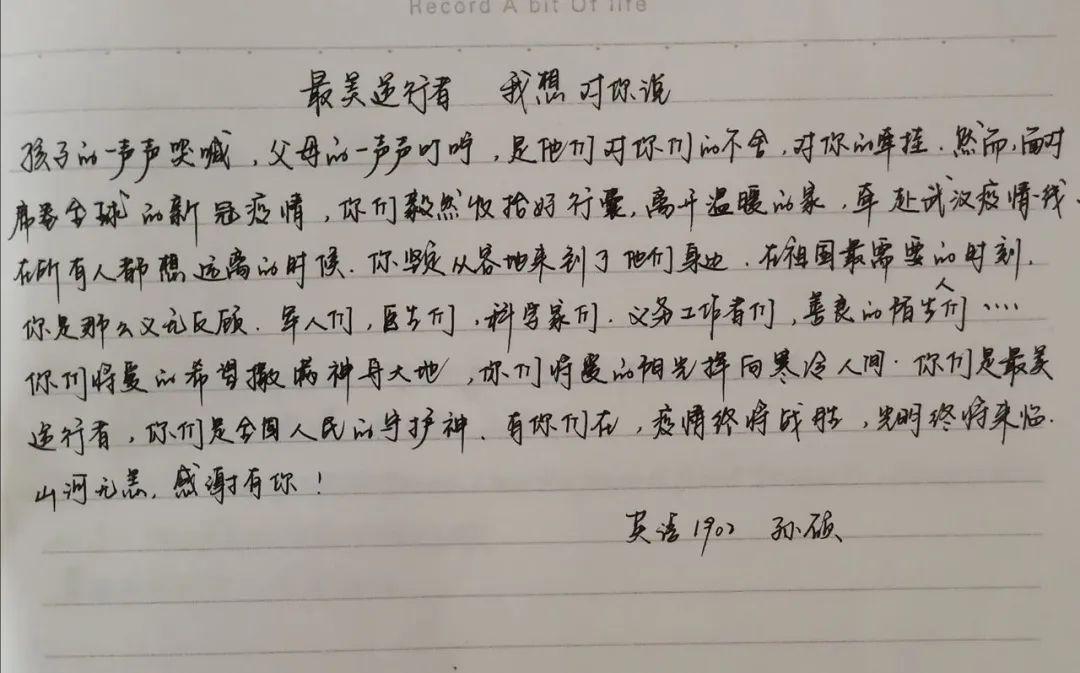 Record A bit Of life
最美逆行者 我想对你说
孩子的一声声哭喊,父母的一声声叮咛,是他们对你们的不舍,对你的牵挂.然而,面对
席卷全球的新冠疫情,你们毅然收拾好行囊,离开温暖的家,奔赴武汉疫情一线.
在所有人都想远离的时候.你坚定从容地来到了他们身边.在祖国最需要的时刻.
你是那么义无反顾.军人们,医生们,科学家们.义务工作者们,善良的陌生人们····
你们将爱的希望撒满神舟大地,你们将爱的阳光挥向寒冷人间.你们是最美
逆行者,你们是全国人民的守护神.有你们在,疫情终将战胜,光明终将来临.
山河无恙,感谢有你!
英语1902 孙硕